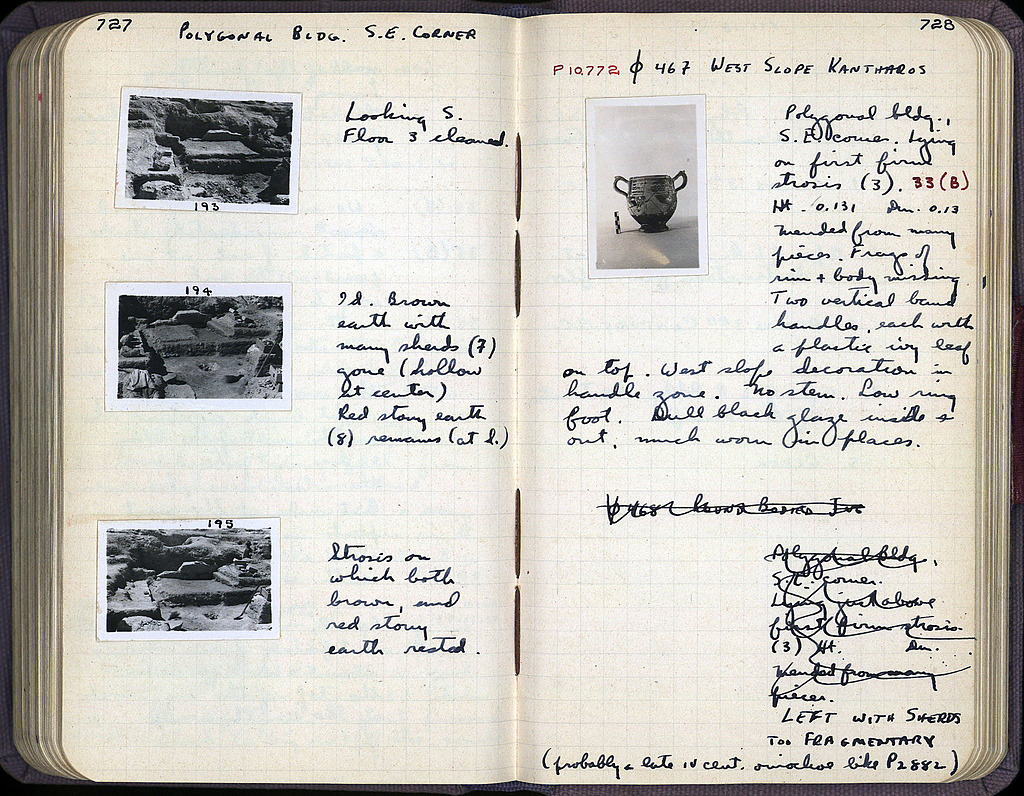 727
POLYGONAL BLDG. S.E. CORNER
Looking S.
Floor 3 cleaned.
193
194
Id. Brown
earth with
many sherds (7)
gone (hollow
at center)
Red stony earth
(8) remains (at l.)
195
Strosis on
which both
brown, and
red stony
earth rested.
728
P 10,772 ϕ 467 WEST SLOPE KANTHAROS
Polygonal bldg.,
S.E. corner. Lying
on first firm
strosis (3). 33(B)
Ht. 0.131 Dm. 0.13
Mended from many
pieces. Frags of
rim + body missing.
Two vertical band
handles, each with
a plastic ivy leaf
on top. West slope decoration in
handle zone. No stem. Low ring
foot. Dull black glaze inside &
out, much worn in places.
ϕ 468 ROUND BODIED JUG
Polygonal bldg.,
S.E. corner.
Lying just above
first firm strosis.
(3) Ht. Dm.
Mended from many
pieces.
LEFT WITH SHERDS
TOO FRAGMENTARY
(probably a late IV cent. oinochoe like P2882)